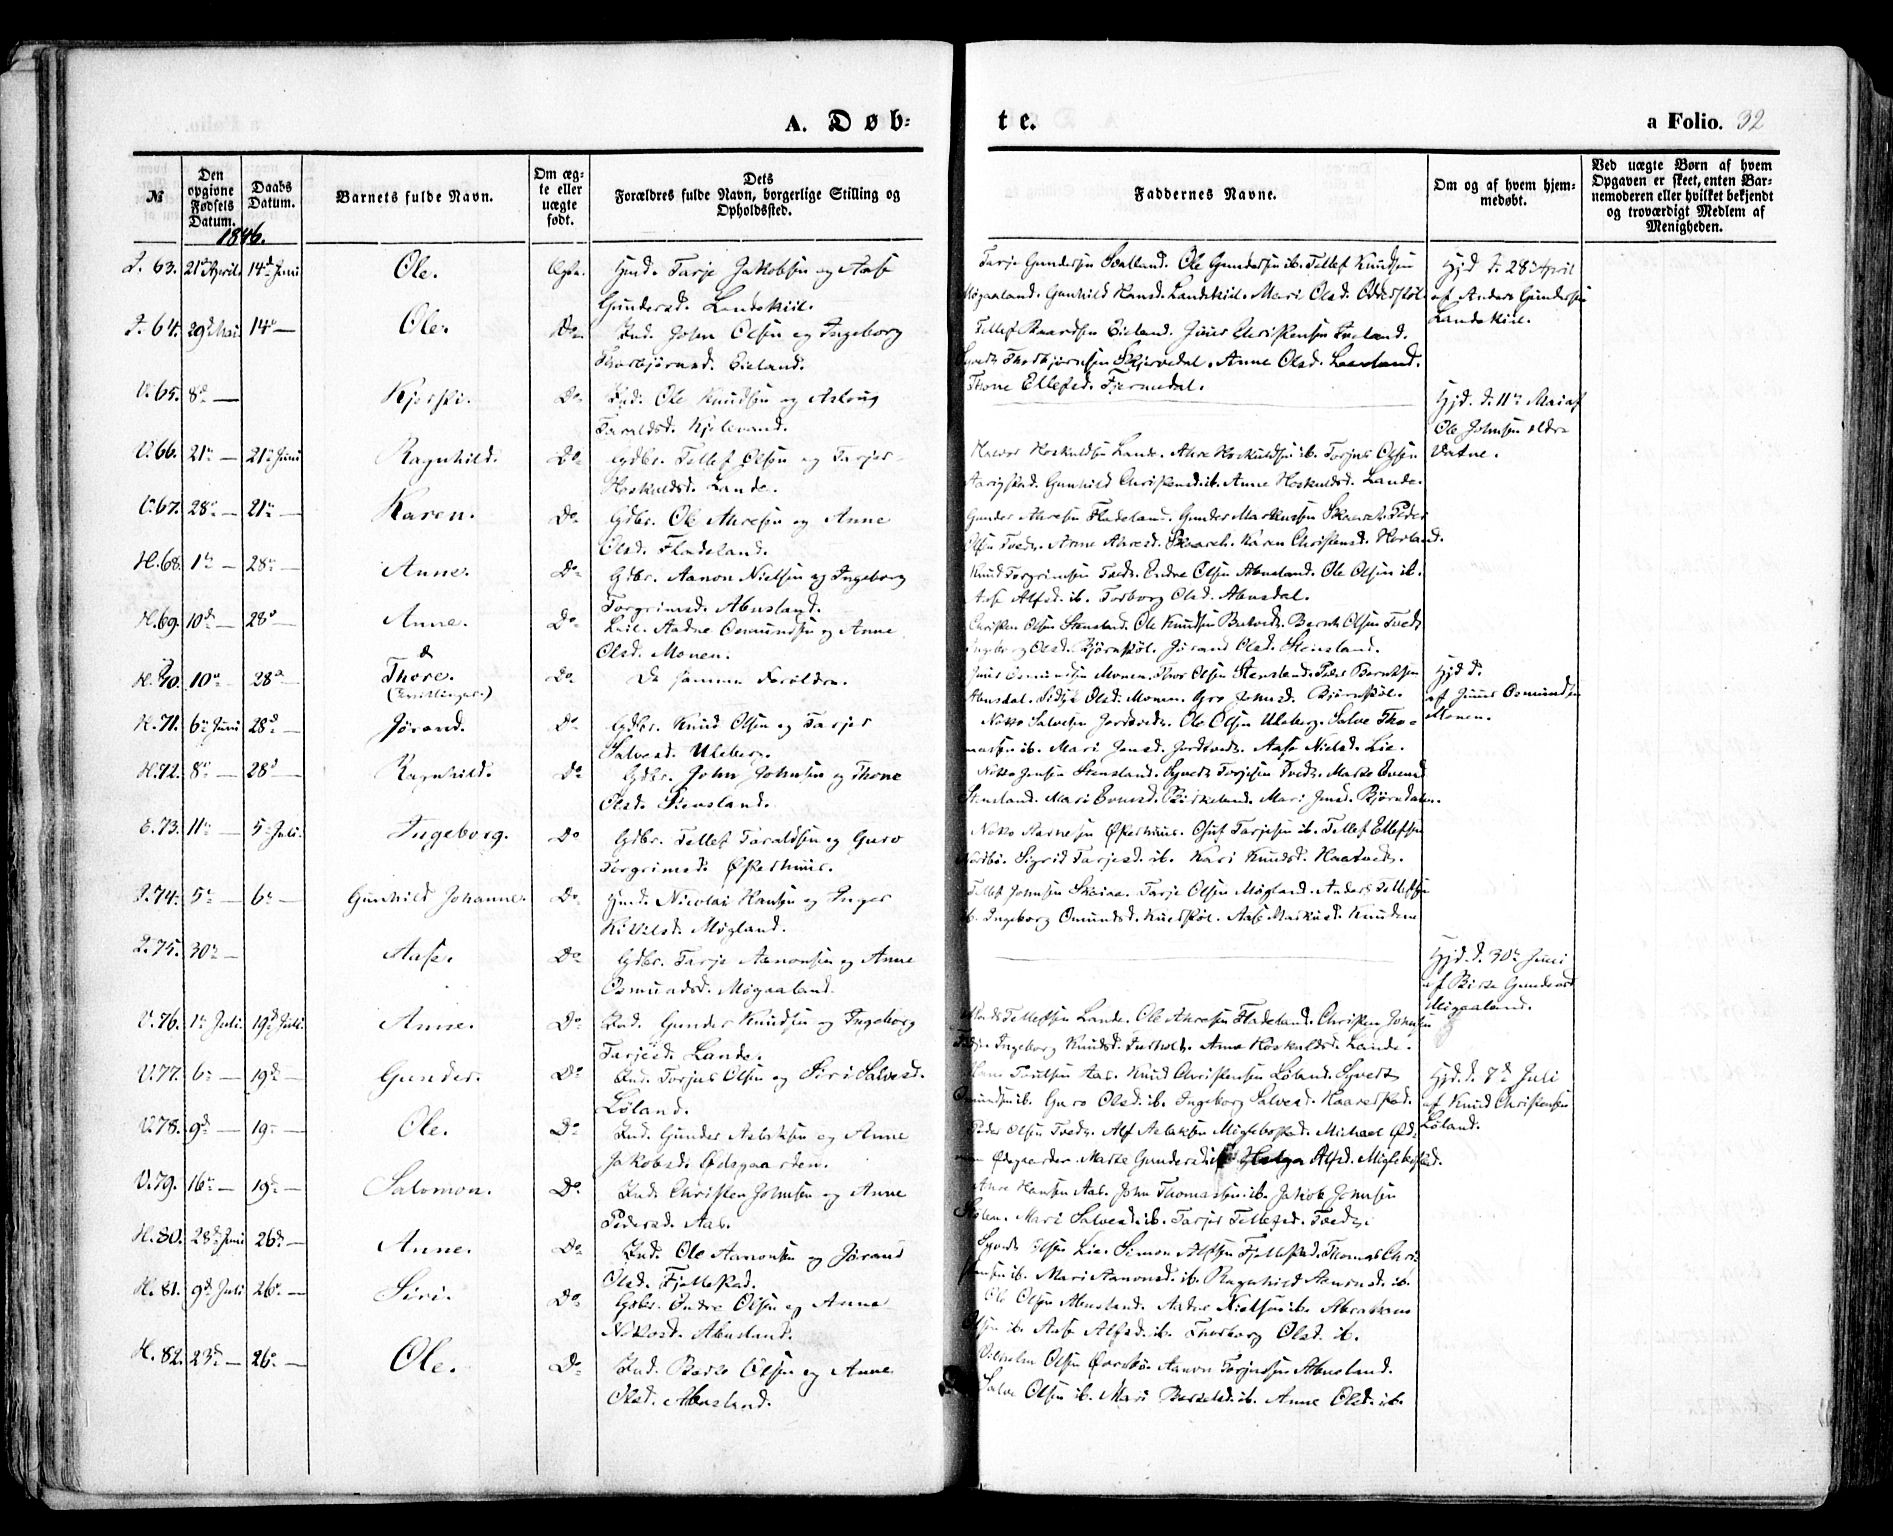 A. Døb-
te.
a Folio. 32
№
Den opgivne Fødsels Datum.
Daabs Datum.
Barnets fulde Navn.
Om ægte eller uægte født.
Dets Forældres fulde Navn, borgerlige Stilling og Opholdssted.
Faddernes Navne.
Om og af hvem hjemmedøbt.
Ved uægte Børn af hvem Opgaven er skeet, enten Barnemoderen eller hvilket bekjendt og troværdigt Medlem af Menigheden.
1846.
63. 21de April 14de Juni Ole. Ægte. Hmd. Tarje Jakobsen og Aase
Gundersd. Landskiil.
Tarje Gundersen Ole Gundersen ib. Tellef Knudsen
Møgaaland. Gunhild Hansd. Landskiil. Mari Olsd.
Hjd. d. 28de April
af Anders Gundersen
Landskiil.
64. 29de Mai 14de — Ole. Do. Ind. John Olsen og Ingeborg
Thorbjørnsd. Eieland.
Eieland. Juur Christensen
Syvert Thorbjørnsen Skjervedal. Anne Olsd.
Thone Ellefsd. Fjermedal.
V. 65. 8de — Kjersti. Do. Ind. Ole Knudsen og Aslaug
Taraldsd. Kjølevand.
Hjd. d. 11te Mai af
Ole Johnsen ældre
Vatne.
V. 66. 21de — 21de Juni Ragnhild. Do. Gdbr. Tellef Olsen og Tarjer
Hoskuldsd. Lande.
Halvor Hoskuldsen Lande. Ahre Hoskuldsen ib. Torjus Olsen
Gunhild Christensd. ib. Anne Hoskuldsd. Lande.
V. 67. 28de — 21de — Karen. Do. Gdbr. Ole Ahresen og Anne
Olsd. Fladeland.
Gunder Ahresen Fladeland. Gunder Markussen Skaareh. Peder
Olsen Tvedt. Anne Ahresd. Skaareh. Karen Christensd. Hovland.
H. 68. 1te — 28de — Anne. Do. Gdbr. Aanon Nielsen og Ingeborg
Torgrimsd. Abusland.
Knud Torgrimsen Tvedt. Endre Olsen Abusland. Ole Olsen ib.
Aase Alfsd. ib. Torborg Olsd. Abusdal.
H. 69. 10de — 28de — Anne. Do. Leil. Aadne Osmundsen og Anne
Olsd. Monen.
Christen Olsen Stensland. Ole Knudsen Bernt Olsen Tvedt
Ingeborg Olsd. Bjørnstøl. Jørand Olsd. Stensland.
H. 70. 10de — 28de — & Thore. (Tvillinger) Do. De samme Forældre.
Juur Osmundsen Monen. Thor Olsen Stensland. Peder Berntsen
Abusdal. Olsd. Monen. Gro Jensd. Bjørnstøl.
Hjd. d.
af Juur Osmundsen
Monen.
H. 71. 6te Juni 28de — Jørand. Do. Gdbr. Knud Olsen og Tarjer
Salvesd. Uleberg.
Nottо Salvesen Ole Olsen Uleberg. Salve Thomassen ib. Mari Jensd. Aase Nielsd. Lie.
H. 72. 8de — 28de — Ragnhild. Do. Gdbr. John Johnsen og Thone
Olsd. Stensland.
Jensen Stensland. Syvert Torjesen Tvedt.
Stensland. Mari Evensd. Birkeland. Mari Jensd. Bjørndalen.
E. 73. 11te — 5te Juli. Ingeborg. Do. Gdbr. Tellef Taraldsen og Guro
Torgrimsd. Øxerhuus.
Øxerhuus. Osuf Tarjesen ib. Tellef Ellefsen
Sigrid Tarjesd. ib. Kari Knudsd. Haatvedt.
74. 5te — 6te — Gunhild Johanne. Do. Hmd. Nicolai Hansen og Inger
Kittelsd. Møgland.
Tellef Johnsen Skaiaa. Tarje Olsen Møgland. Anders Tellefsen
ib. Ingeborg Omundsd. Aase Markusd.
75. 30te — Aase. Do. Gdbr. Tarje Aanonsen og Anne
Osmundsd. Møgaaland.
Hjd. d. 30te Juni
af Birte Gundersd.
Møgaaland.
V. 76. 1te Juli. 19de Juli. Anne. Do. Ind. Gunder Knudsen og Ingeborg
Tarjesd. Lande.
Tellefsen Lande. Ole Ahresen Fladeland. Christen Johnsen
Ingeborg Knudsd. Anne Hoskuldsd. Lande.
V. 77. 6te — 19de — Gunder. Do. Ind. Torjus Olsen og Siri Salvesd.
Løland.
Hans Poulsen Aas. Knud Christensen Løland. Syvert
Omundsen ib. Guro Olsd. ib. Ingeborg Salvesd. Haarestad.
Hjd. d. 7de Juli
af Knud Christensen
Løland.
V. 78. 9de — 19de — Ole. Do. Ind. Gunder Aslaksen og Anne
Jakobsd. Ødegaarden.
Peder Olsen Tvedt. Alf Aslaksen Miglebostad. Michael
Ødegaarden. Marte Gundersd. ib. Helga Alfsd. Miglebostad.
V. 79. 16de — 19de — Salomon. Do. Ind. Christen Johnsen og Anne
Pedersd. Aas.
Hansen Aas. John Thomassen ib. Jakob Johnsen
Mari Salvesd. ib. Tarjer Tellefsd. Tvedt.
H. 80. 28de Juni 26de — Anne. Do. Ind. Ole Aanonsen og Jørand
Olsd. Fjellestad.
Syvert Olsen Lie. Simon Alfsen Fjellestad. Thomas Christensen ib. Mari Aanonsd. ib. Ragnhild Aanonsd. ib.
H. 81. 9de Juli 26de — Siri. Do. Gdbr. Endre Olsen og Anne
Nottosd. Abusland.
Ole Olsen Abusland. Aadne Nielsen ib. Abraham
Olsen ib. Aase Alfsd. ib. Thorborg Olsd. ib.
H. 82. 23de — 26de — Ole. Do. Ind. Olsen og Anne
Olsd. Abusland.
Vilhelm Olsen Aanon Torjussen Abusland.
Salve Olsen ib. Mari ib. Anne Olsd. ib.